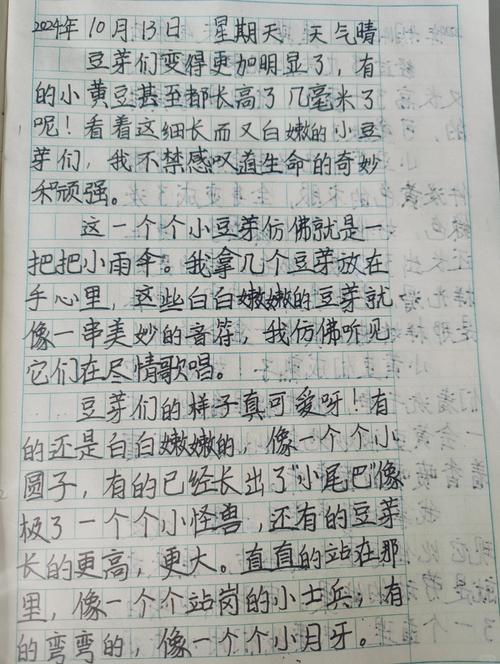 2024年10月13日 星期天 天气晴
豆芽们变得更加明显了，有
的小黄豆甚至都长高了几毫米了
呢！看着这细长而又白嫩的小豆
芽们，我不禁感叹道生命的奇妙
和顽强。
这一个个小豆芽仿佛就是一
把把小雨伞。我拿几个豆芽放在
手心里，这些白白嫩嫩的豆芽就
像一串美妙的音符，我仿佛听见
它们在尽情歌唱。
豆芽们的样子真可爱呀！有
的还是白白嫩嫩的，像一个个小
圆子，有的已经长出了“小尾巴”像
极了一个个小怪兽，还有的豆芽
长的更高，更大。直直的站在那
里，像一个个站岗的小士兵；有
的弯弯的，像一个个小月牙。